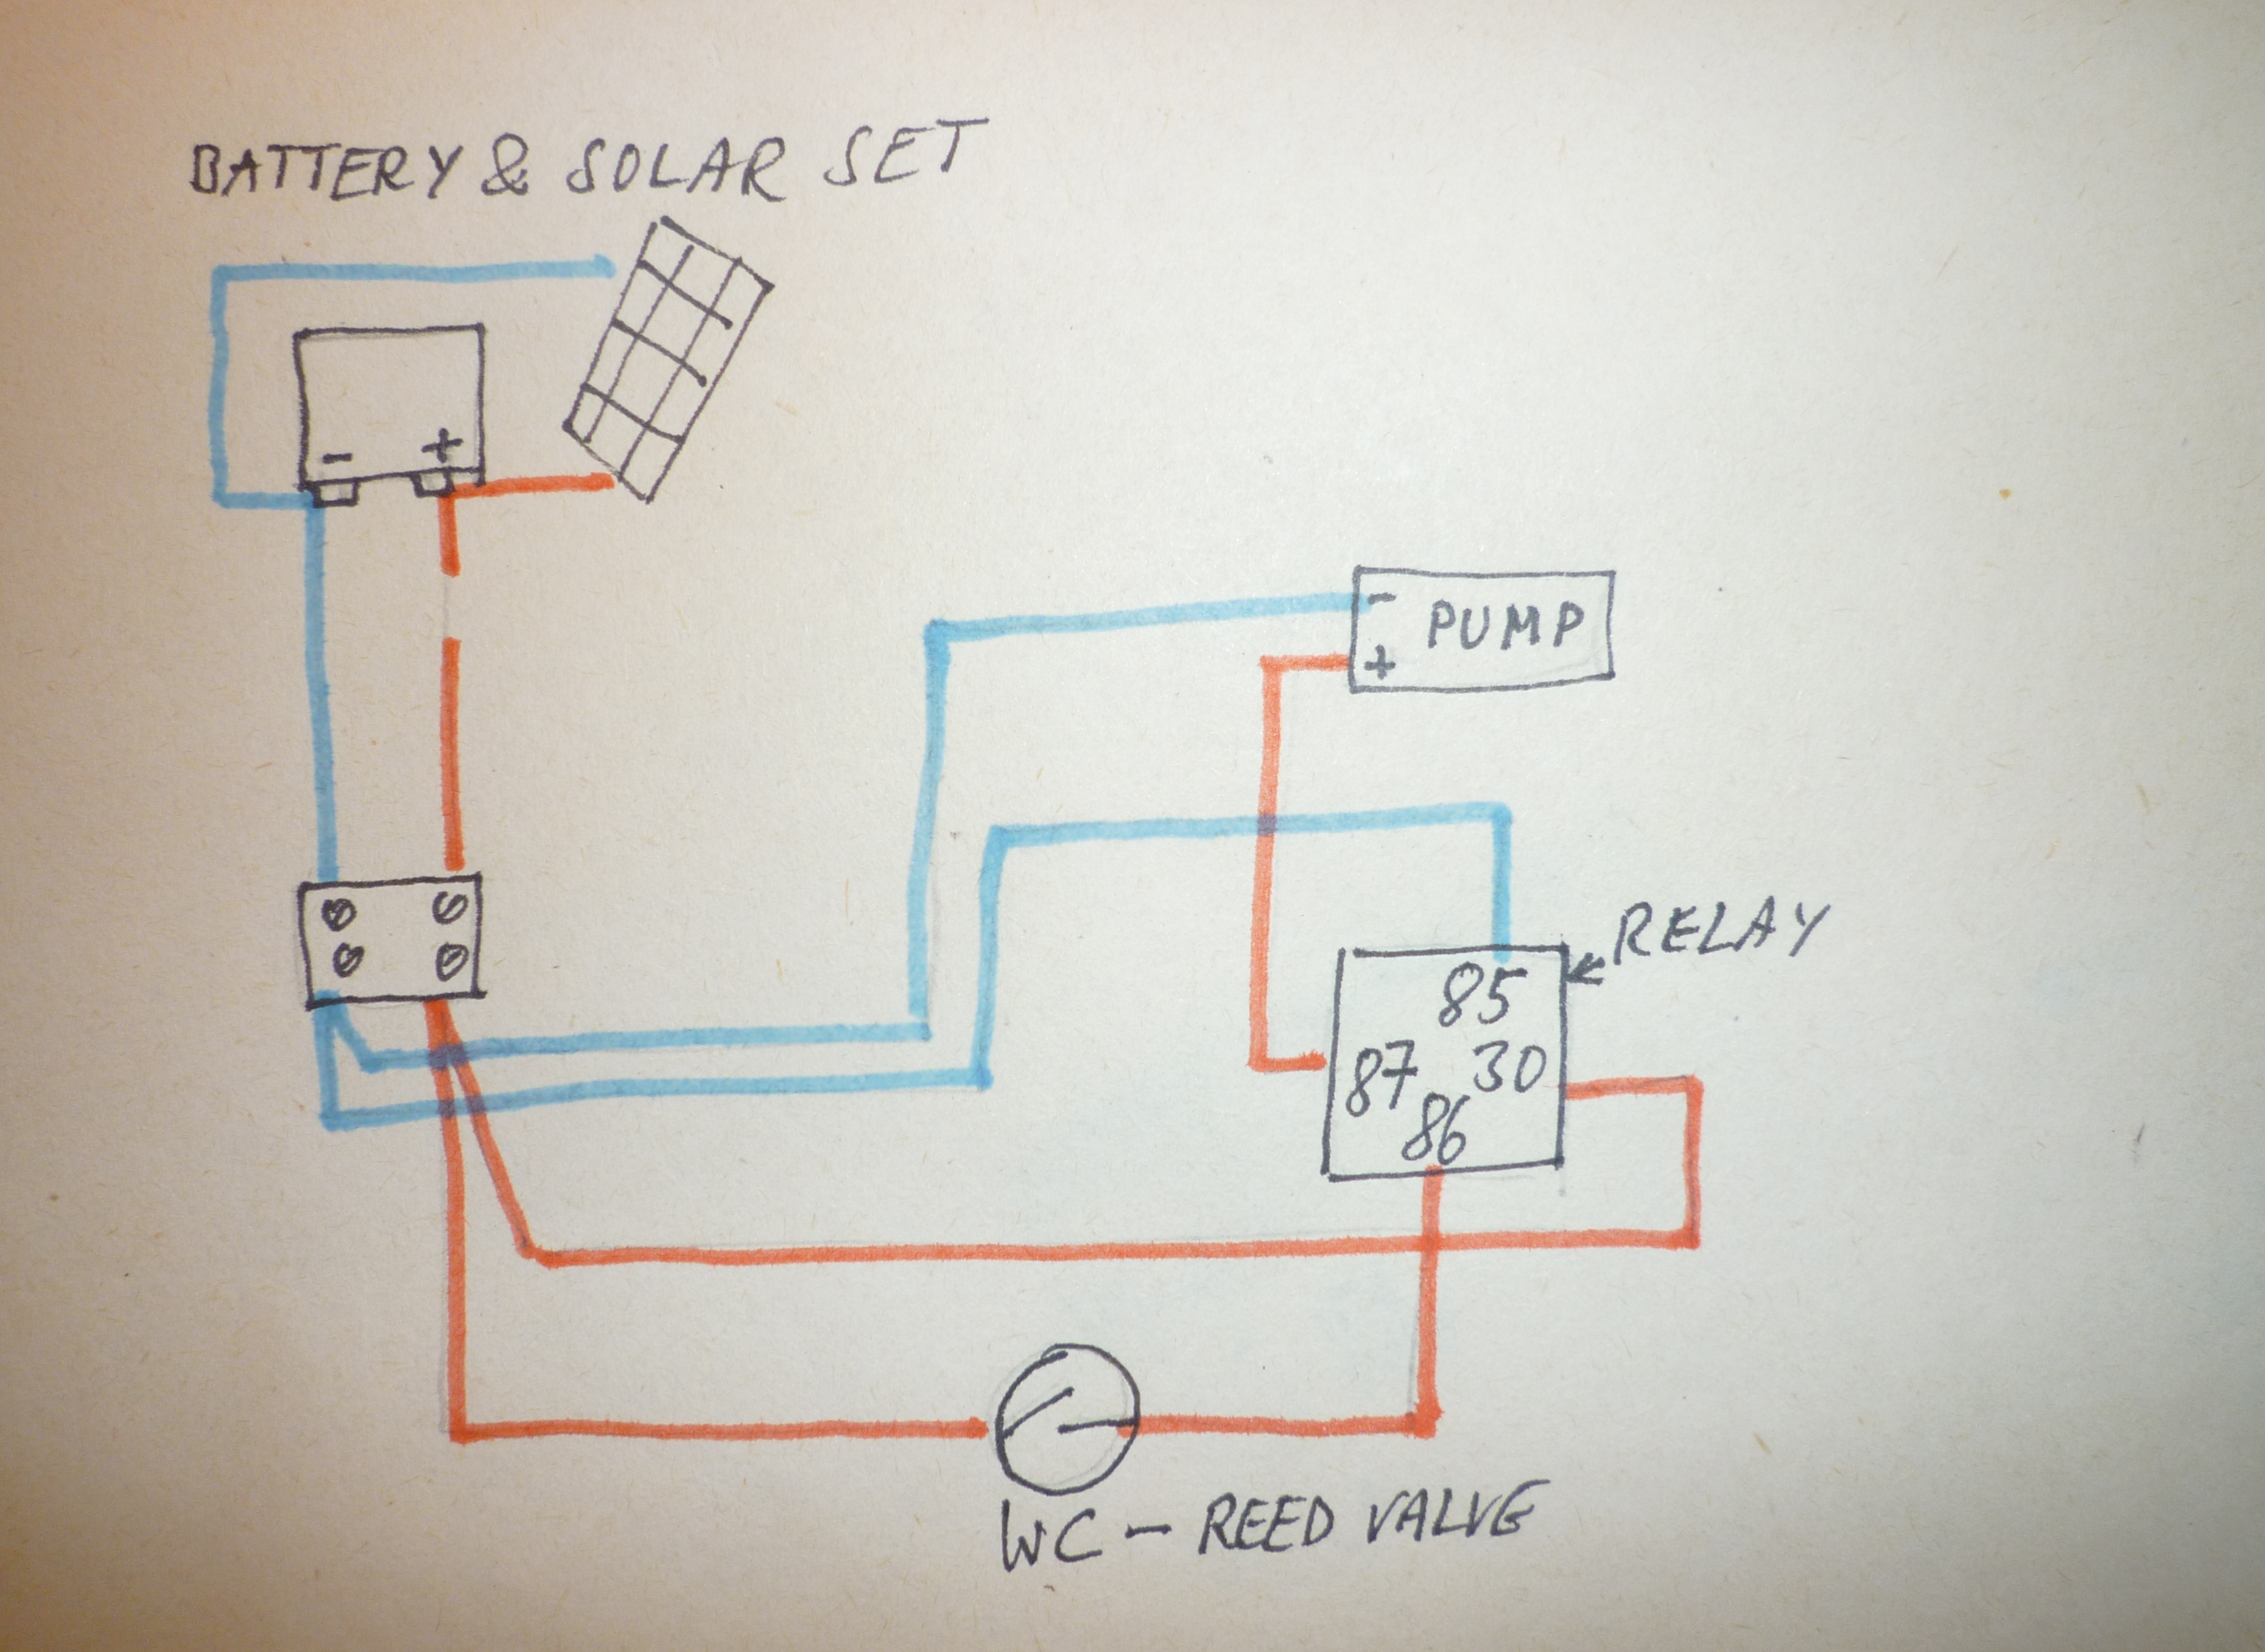 BATTERY & SOLAR SET
- +
- PUMP
+
RELAY
85
87 30
86
WC - REED VALVE